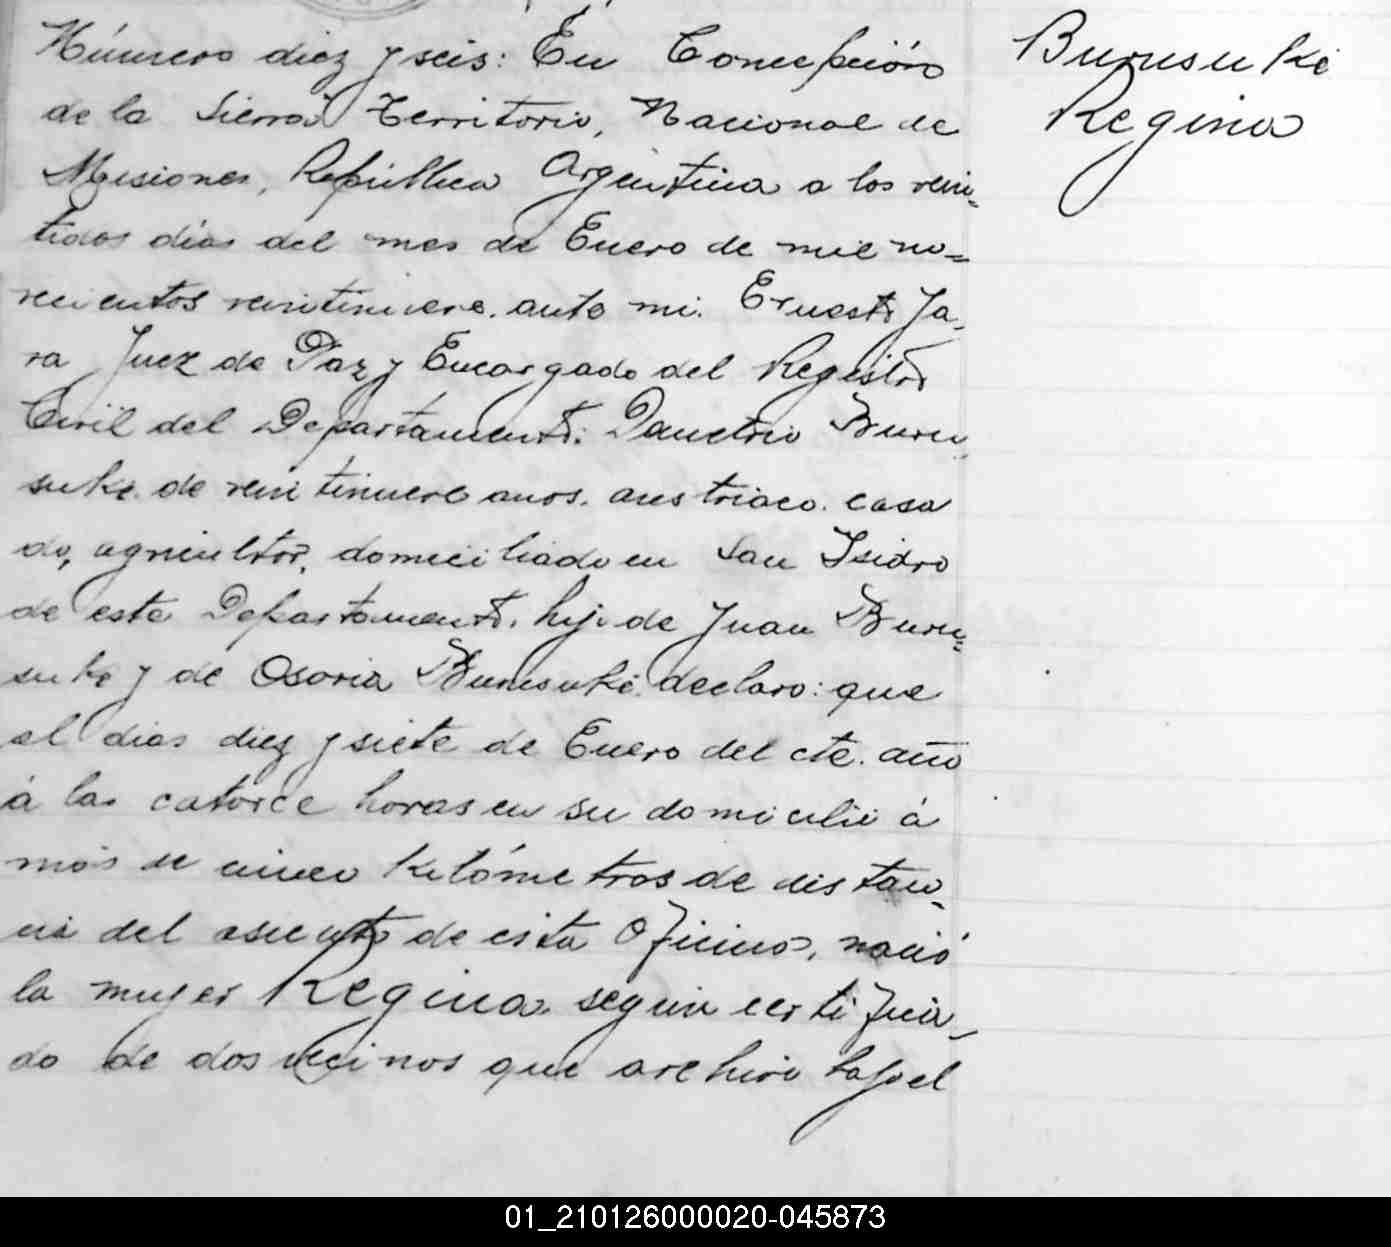 Número diez y seis: En Concepción
de la Sierra Territorio, Nacional de
Misiones, República Argentina a los vein-
tidos días del mes de Enero de mil no-
vecientos veintinueve. ante mi. Ernesto Ja-
ra Juez de Paz y Encargado del Registro
Civil del Departamento: Demetrio Buru-
suke. de veintinueve anos. austriaco. casa
do, agricultor, domiciliado en San Isidro
de este Departamento. hijo de Juan Buru-
suke y de Osoria Burusuke. declaro: que
el dias diez y siete de Enero del cte. año
á las catorce horas en su domicilio á
más de cinco kilómetros de distan-
cia del asiento de esta Oficina, nació
la mujer Regina. segun certifica-
do de dos vecinos que archivo bajo el
Burusuki
Regina
01_210126000020-045873